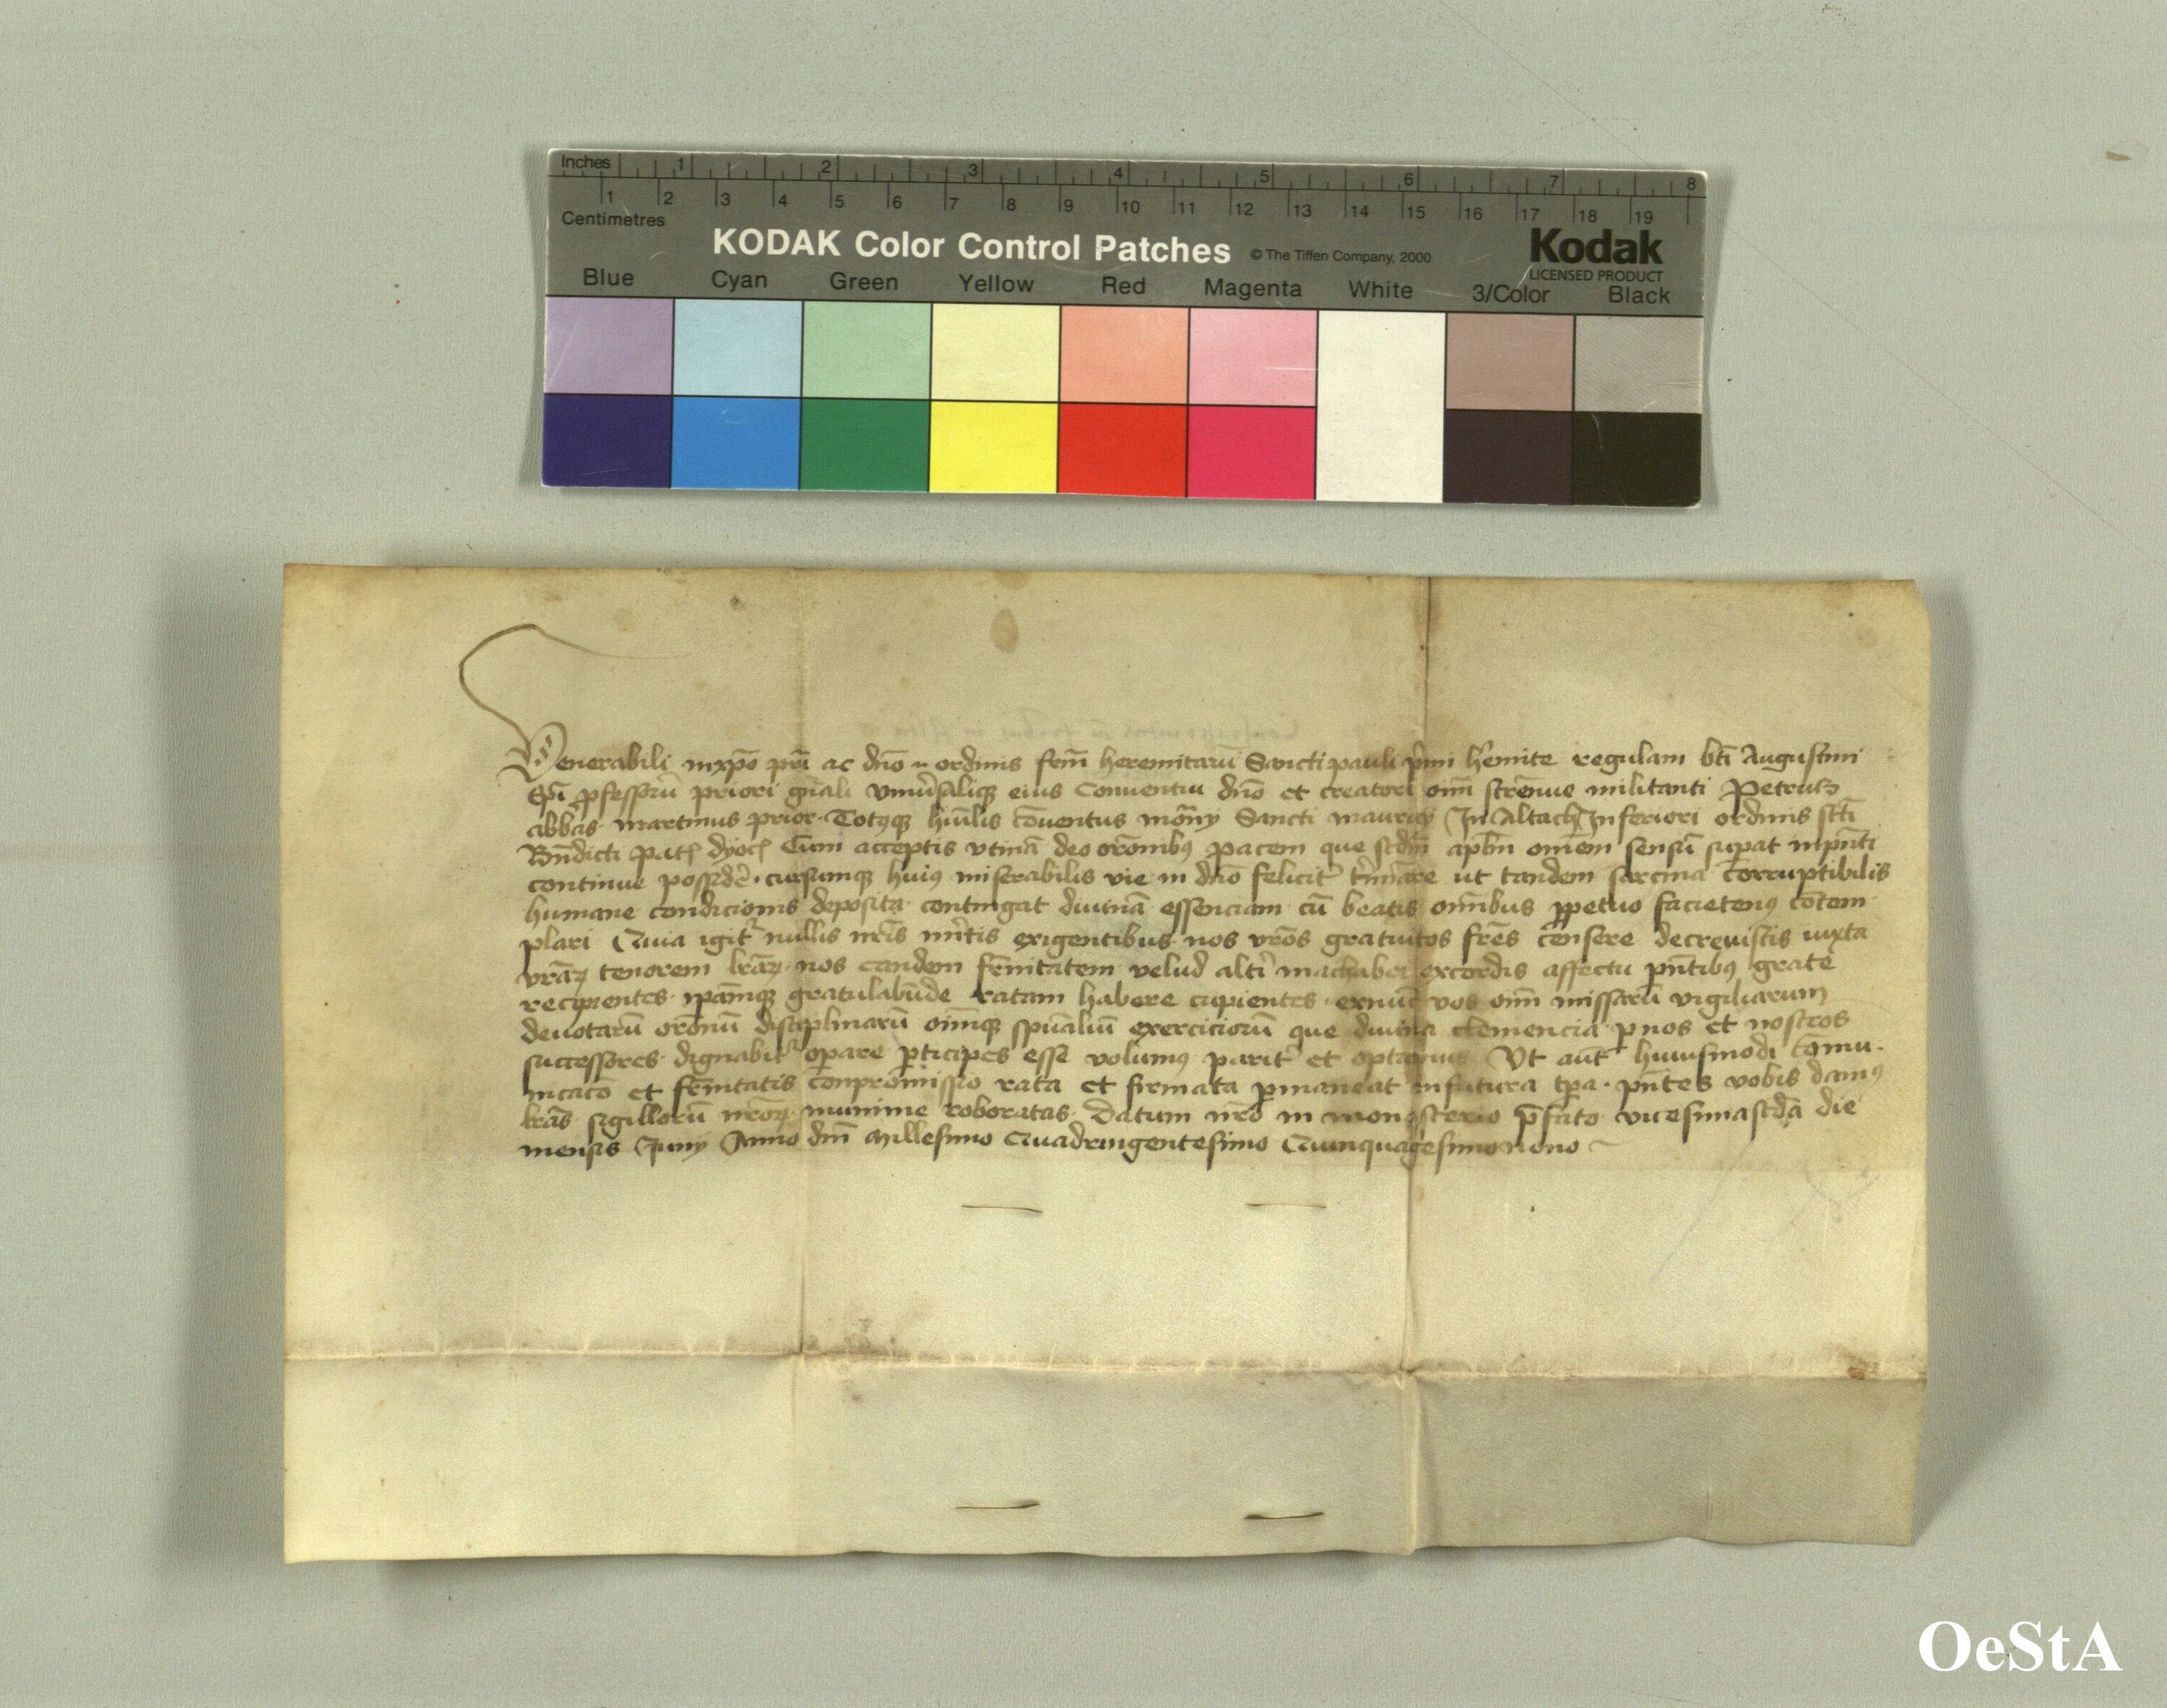 Inches 1 2 3 4 5 6 7 8
1 2 3 4 5 6 7 8 9 10 11 12 13 14 15 16 17 18 19
Centimetres
KODAK Color Control Patches © The Tiffen Company, 2000 Kodak
LICENSED PRODUCT
Blue Cyan Green Yellow Red Magenta White 3/Color Black
Venerabili inxpō pr̄i ac dn̄o ordinis frm̄ heremitarū Sancti pauli p̄mi h̄emite regulam bt̄i Augustini
Ep̄i ꝓfessorū priori gn̄ali vniu̓salique eius Conuentui dn̄o et creatori oīm strēnue militanti Petrus
abbas martinus prior Totusque hūilis cōuentus mon̄ry Sancti mauricij In Altach Inferiori ordinis sct̄i
Bn̄dicti pat dyoc Cum acceptis vtinā deo orōnibus pacem que scdm̄ apl̄m omēm sensū supat inpn̄ti
continue possidē cursumque huius miserabilis vie in dn̄o felicit̄ t̄minare ut tandem sarcina corruptibilis
humane condicionis deposita contingat diuinā essenciam cū beatis omībus ꝑpetuo facietenus cōtem
plari Quia igit̄ nullis nr̄is mītis exigentibus nos vr̄os gratuitos frēs censere decreuistis iuxta
vrāꝝ tenorem lrāꝝ nos eandem fr̄nitatem velud alt̄i machabei excordis affectu pn̄tibus grate
recipientes ip̄amque gratulabūde ratam habere cupientes vos oīm missarū vigiliarum
deuotarū orōnū disciplinarū oīmque spūaliū exerciciorū que diuina clemencia ꝑ nos et nostros
successores dignabit̄ opare ꝑticipes esse volumus parit̄ et optamus Vt aūt huiusmodi cōmu
nicacō et fr̄nitatis conpromissio rata et firmata ꝑmaneat in futura tpa pn̄tes vobis damus
lrās sigillorū nrōꝝ munime roboratas Datum nr̄o in monasterio p̄fato vicesimascdā die
mensis Junij Anno dm̄ Millesimo Quadringentesimo Quinquagesimonono
OeStA